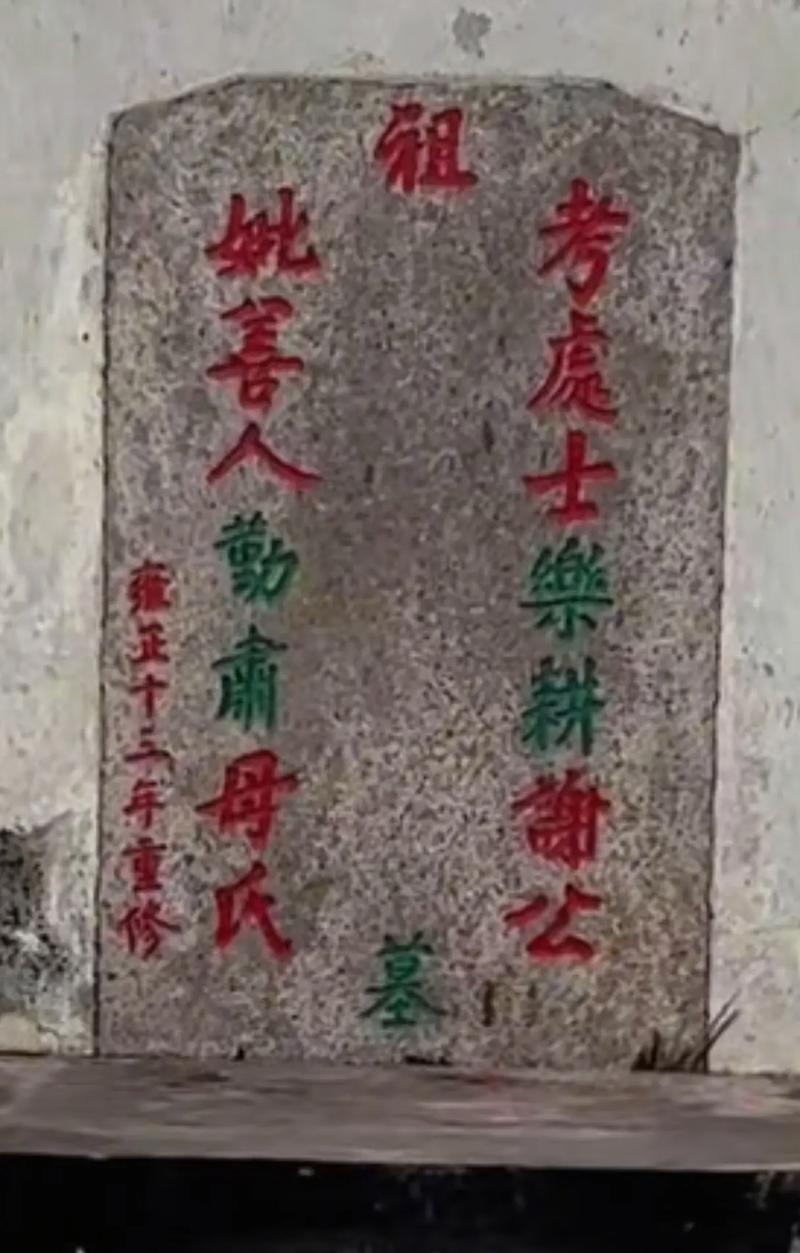 祖
考處士樂耕謝公
妣善人勤肅母氏
墓
雍正十三年重修